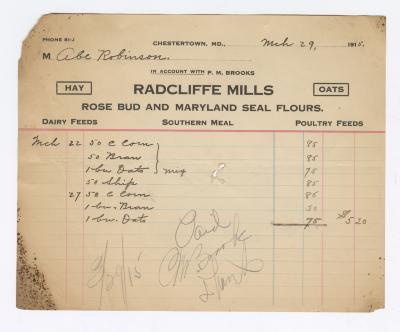 PHONE 81-J
CHESTERTOWN, MD., Mch 29, 1915.
M Abe Robinson.
IN ACCOUNT WITH P. M. BROOKS
HAY RADCLIFFE MILLS OATS
ROSE BUD AND MARYLAND SEAL FLOURS.
DAIRY FEEDS SOUTHERN MEAL POULTRY FEEDS
Mch 22 50 C Corn 95
50 Bran 85
1 bu Oats mix 75
50 Ship 85
27 50 C Corn
1 bu. Bran
1 bu. Oats 75 $5 20
Paid
PM Brooks
3/29/15